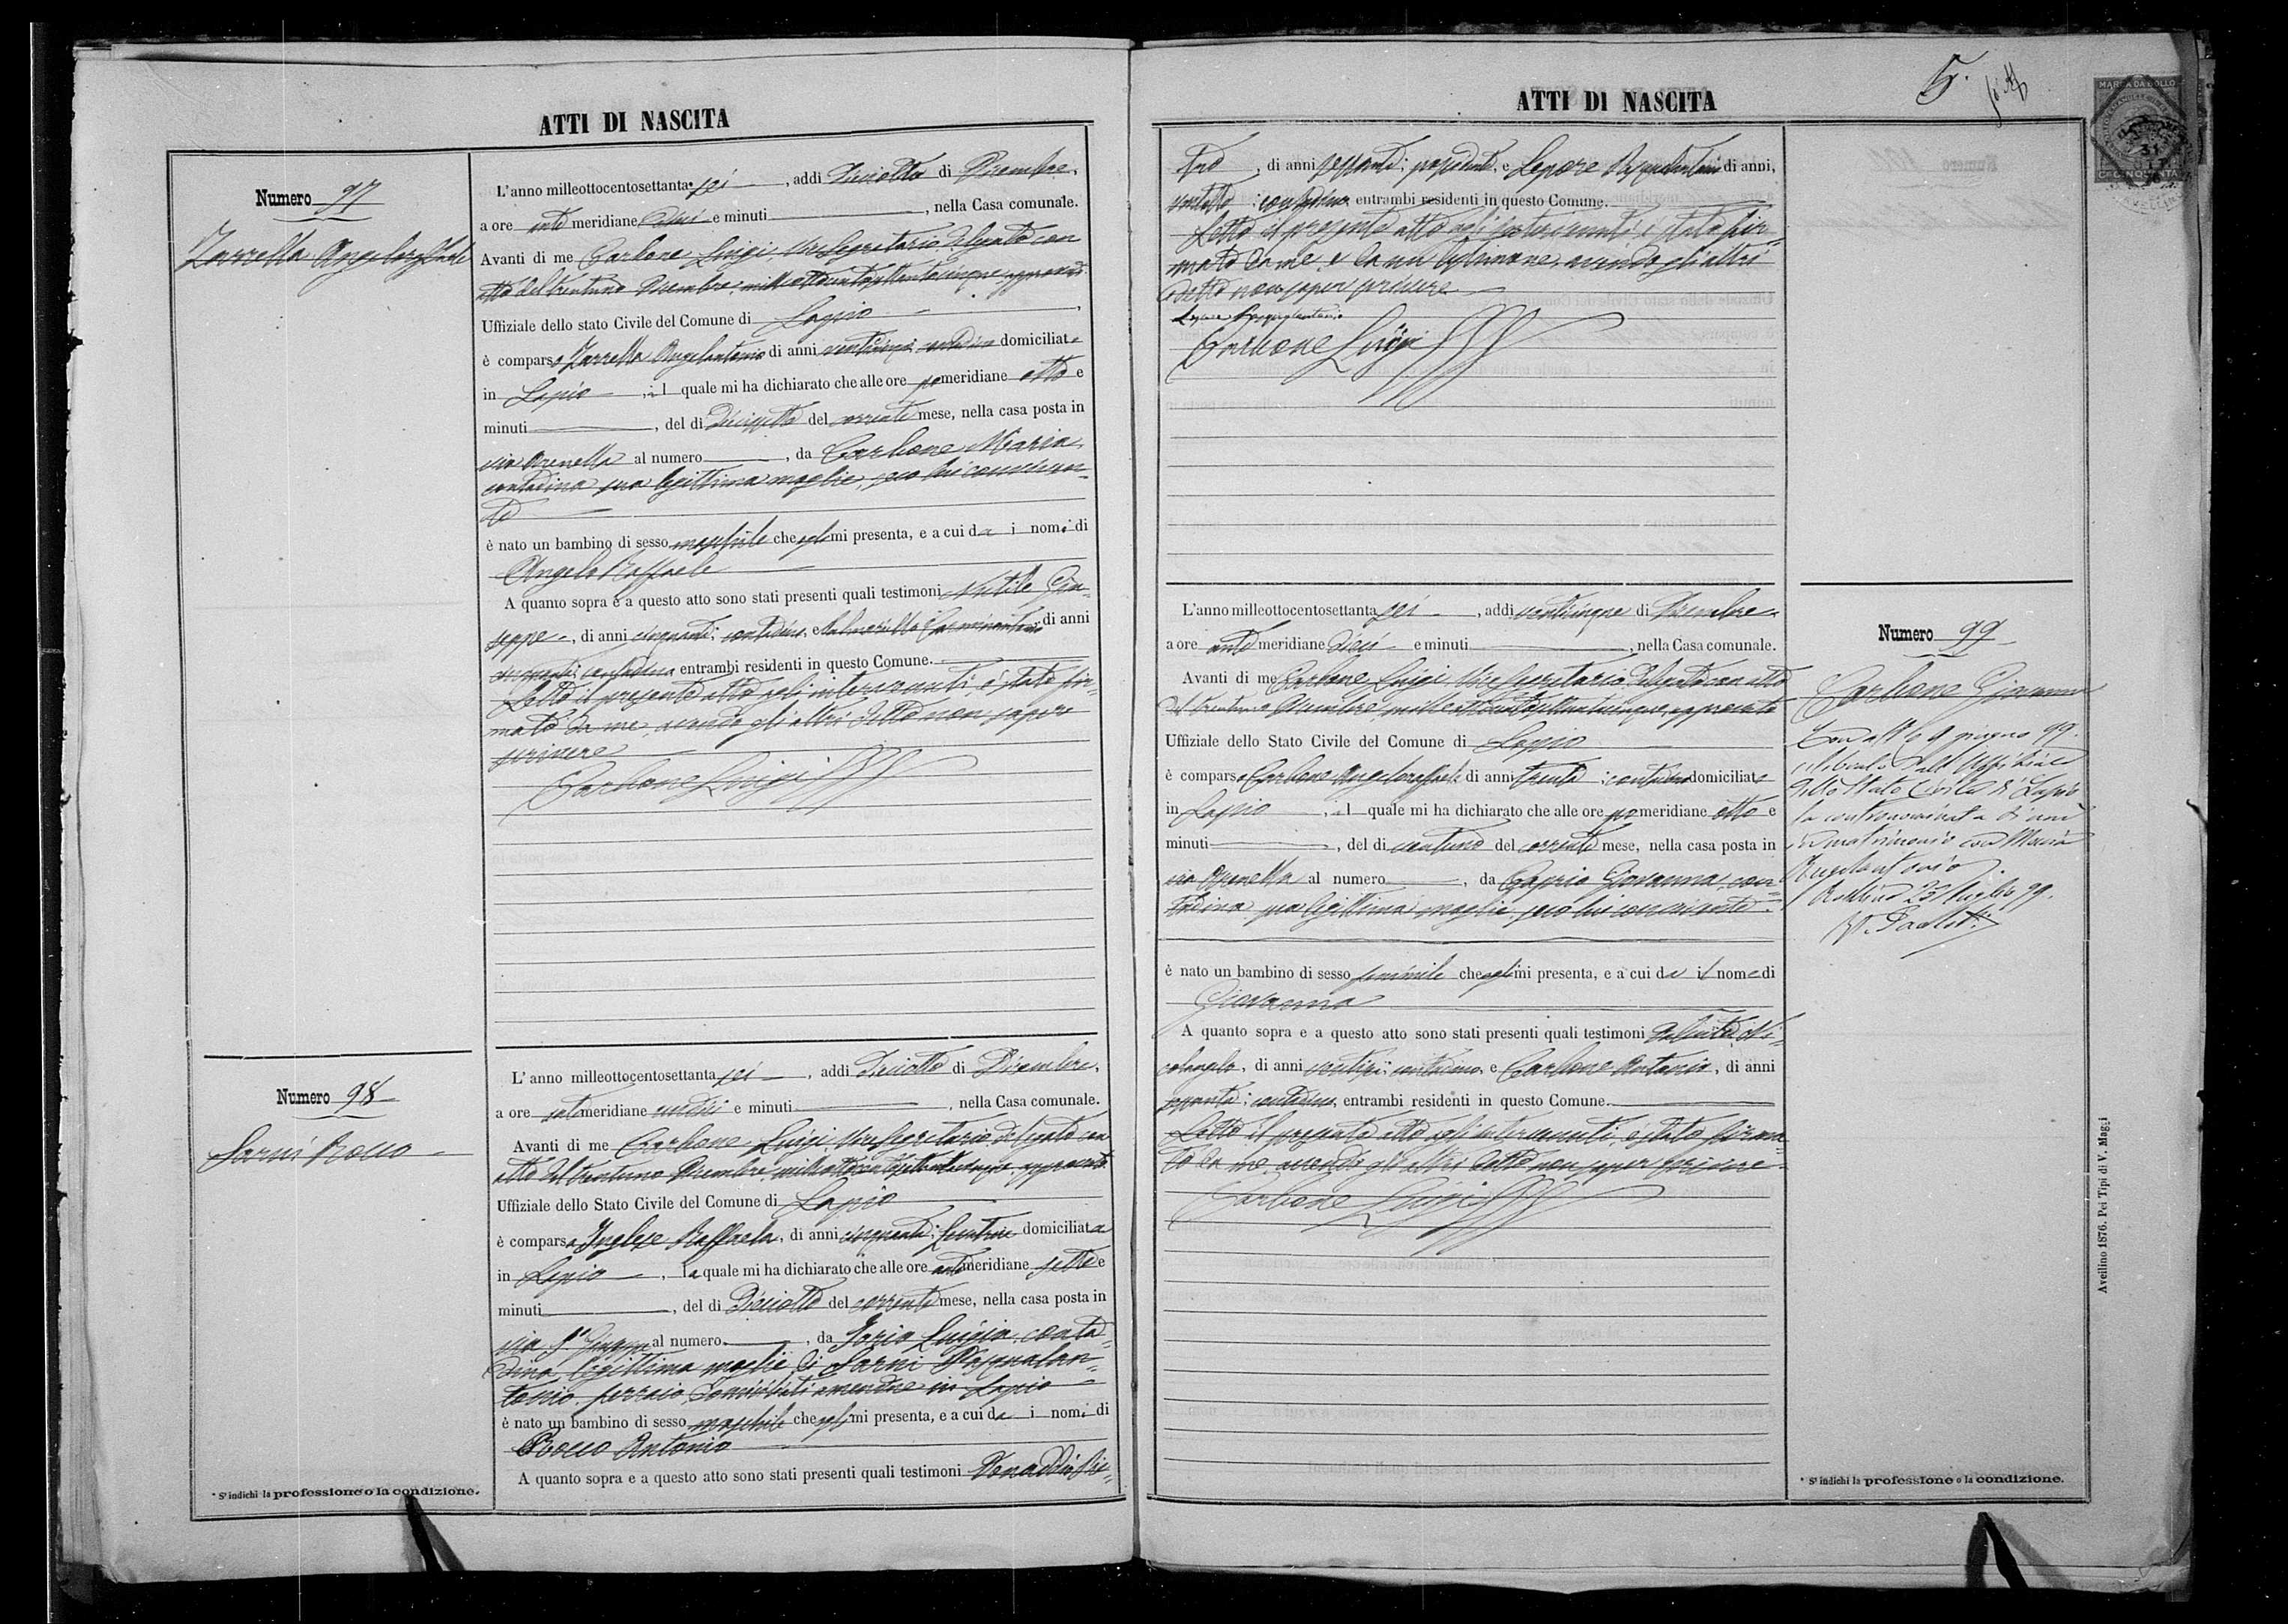 ATTI DI NASCITA
Numero 97
Zarrella Angeloraffaele
L'anno milleottocentosettanta sei, addì Diciotto di Dicembre,
a ore anti meridiane Dieci e minuti, nella Casa comunale.
Avanti di me Carbone Luigi Vice Segretario delegato con
atto del trentuno Dicembre milleottocentosettantacinque approvato
Uffiziale dello stato Civile del Comune di Lapio,
è comparso Zarrella Angelantonio di anni contadino domiciliato
in Lapio, il quale mi ha dichiarato che alle ore pomeridiane otto e
minuti, del dì diciassette del corrente mese, nella casa posta in
via Arenella al numero, da Carbone Maria
contadina sua legittima moglie, seco lui conviven-
te
è nato un bambino di sesso maschile che egli mi presenta, e a cui dà i nomi di
Angelo Raffaele
A quanto sopra e a questo atto sono stati presenti quali testimoni Nutile Giu-
seppe, di anni cinquanta, contadino, e di anni
cinquanta, contadino, entrambi residenti in questo Comune.
Letto il presente atto agli intervenuti è stato fir-
mato da me, avendo gli altri detto non sapere
scrivere
Carbone Luigi
Numero 98
Sarni Rocco
L'anno milleottocentosettanta sei, addì Diciotto di Dicembre,
a ore antimeridiane undici e minuti, nella Casa comunale.
Avanti di me Carbone Luigi Vice Segretario delegato con
atto del trentuno Dicembre milleottocentosettantacinque approvato
Uffiziale dello Stato Civile del Comune di Lapio
è comparsa Inglese Raffaela, di anni cinquanta, levatrice domiciliata
in Lapio, la quale mi ha dichiarato che alle ore antimeridiane sette e
minuti, del dì Diciotto del corrente mese, nella casa posta in
via S. Giuseppe al numero, da Iorio Luigia, conta-
dina, legittima moglie di Sarni Pasqualan-
tonio ferraio, domiciliati amendue in Lapio
è nato un bambino di sesso maschile che mi presenta, e a cui dà i nomi di
Rocco Antonio
A quanto sopra e a questo atto sono stati presenti quali testimoni
* Si indichi la professione o la condizione.
ATTI DI NASCITA
5.
MARCA DA BOLLO
CINQUANTA
di anni sessanta, possidente, e Lepore Pasqualantonio di anni,
entrambi residenti in questo Comune.
Letto il presente atto agli intervenuti è stato fir-
mato da me, e da un testimone, avendo gli altri
detto non saper scrivere
Lepore Pasqualantonio
Carbone Luigi
L'anno milleottocentosettanta sei, addì venticinque di Dicembre
a ore anti meridiane dieci e minuti, nella Casa comunale.
Avanti di me Carbone Luigi Vice Segretario delegato con atto
del trentuno Dicembre milleottocentosettantacinque, approvato
Uffiziale dello Stato Civile del Comune di Lapio
è comparso Carbone Angeloraffaele di anni trenta, contadino domiciliato
in Lapio, il quale mi ha dichiarato che alle ore pomeridiane otto e
minuti, del dì ventuno del corrente mese, nella casa posta in
via Arenella al numero, da Caprio Giovanna, con-
tadina sua legittima moglie, seco lui convivente.
è nato un bambino di sesso feminile che egli mi presenta, e a cui dà il nome di
Giovanna
A quanto sopra e a questo atto sono stati presenti quali testimoni Ni-
colangelo, di anni contadino e Carbone Antonio, di anni
sessanta, contadino, entrambi residenti in questo Comune.
Letto il presente atto agli intervenuti, è stato firma-
to da me, avendo gli altri detto non saper scrivere
Carbone Luigi
Numero 99
Carbone Giovanna
Con atto 9 giugno 99.
celebrato dall'Uffiziale
dello Stato Civile di Lapio
la contronominata si unì
in matrimonio con
Angelantonio.
Avellino 23 luglio 99.
* Si indichi la professione o la condizione.
Avellino 1876. Pei Tipi di V. Maggi